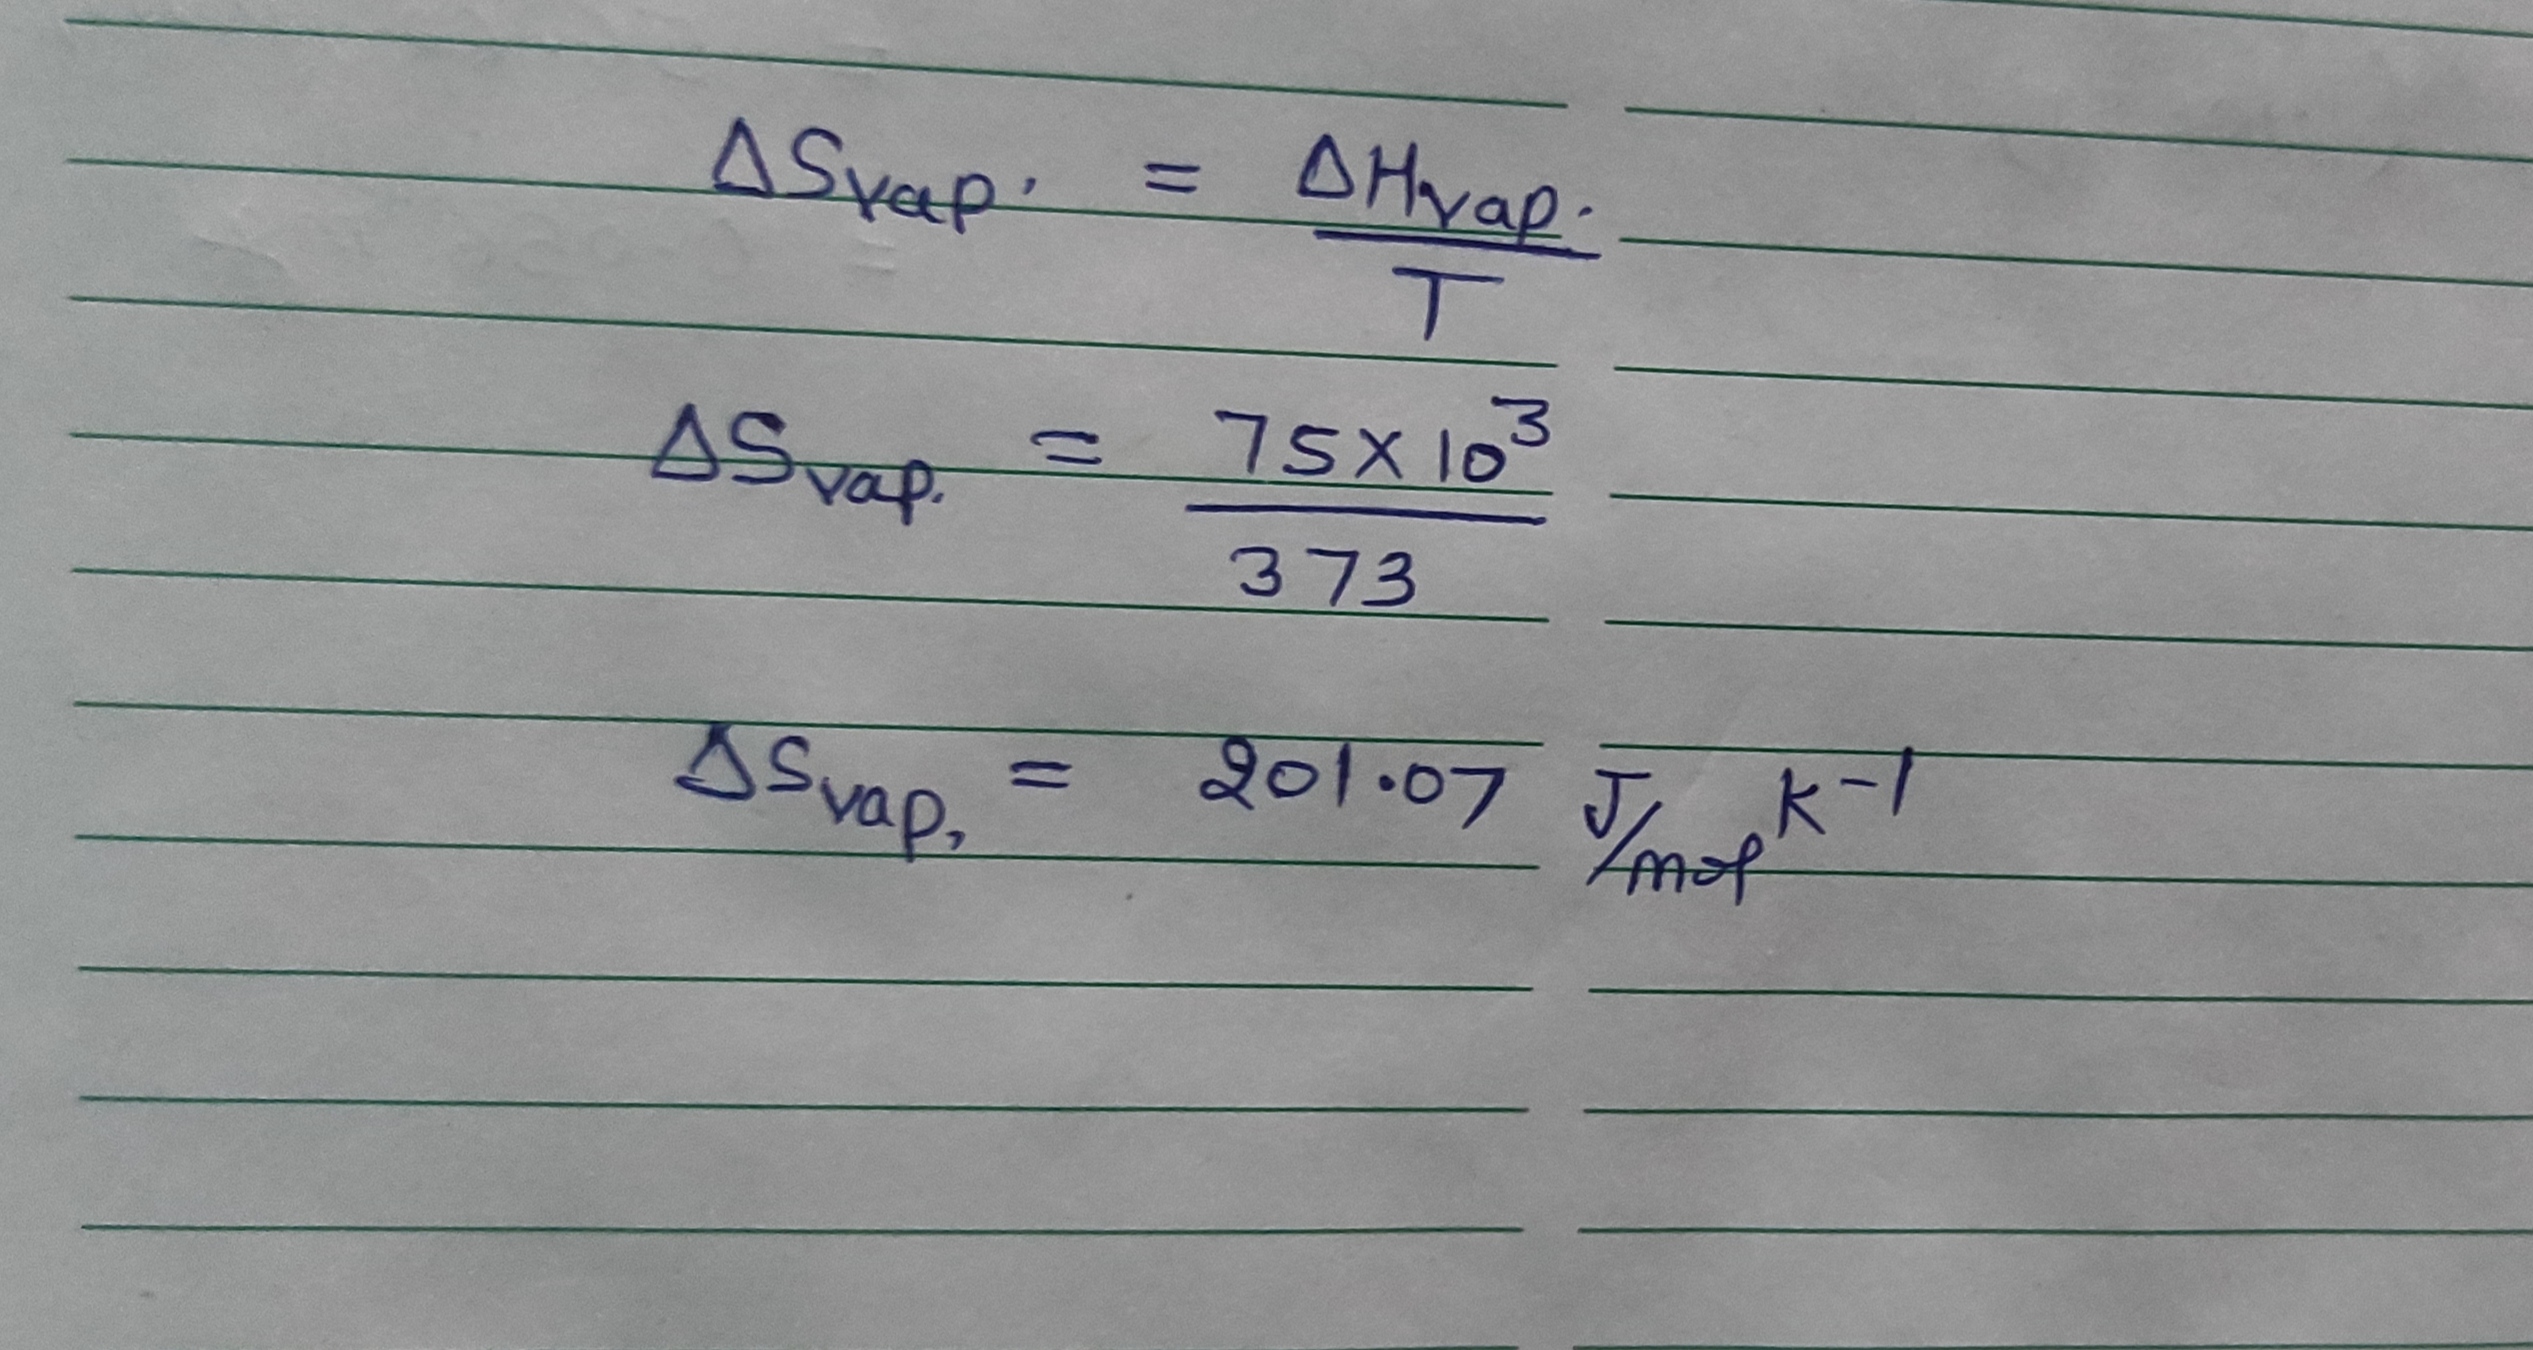 ΔSvap. = ΔHvap. / T
ΔSvap. = 75×10³ / 373
ΔSvap, = 201.07 J/mol K⁻¹